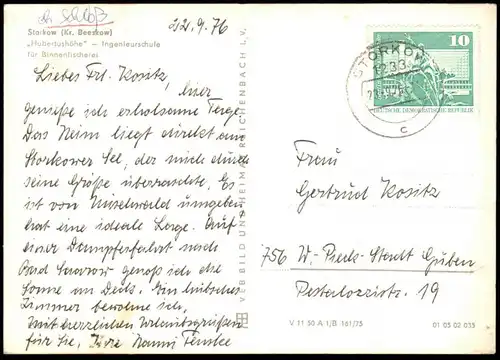 Schloß
22.9.76
Storkow (Kr. Beeskow)
„Hubertushöhe" — Ingenieurschule
für Binnenfischerei
Liebes Frl. Kositz, hier
genieße ich erholsame Tage.
Das Heim liegt direkt am
Storkower See, der mich durch
seine Größe überraschte. Es
ist von Mischwald umgeben
hat eine ideale Lage. Auf
einer Dampferfahrt nach
Bad Saarow genoß ich die
Sonne an Deck. Ein hübsches
Zimmer bewohne ich.
Mit herzlichen Urlaubsgrüßen
für Sie, Ihre Nanni
VEB BILD UND HEIMAT REICHENBACH I. V.
STORKOW
1233
c
10
DEUTSCHE DEMOKRATISCHE REPUBLIK
Frau
Gertrud Kositz
756 W.-Pieck-Stadt Guben
Pestalozzistr. 19
V 11 50 A 1/B 181/75
01 05 02 035